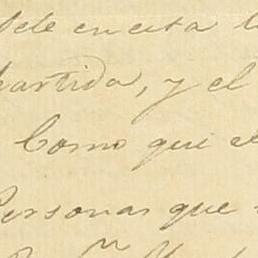 en esta
partida, y el
Como que el
Personas que